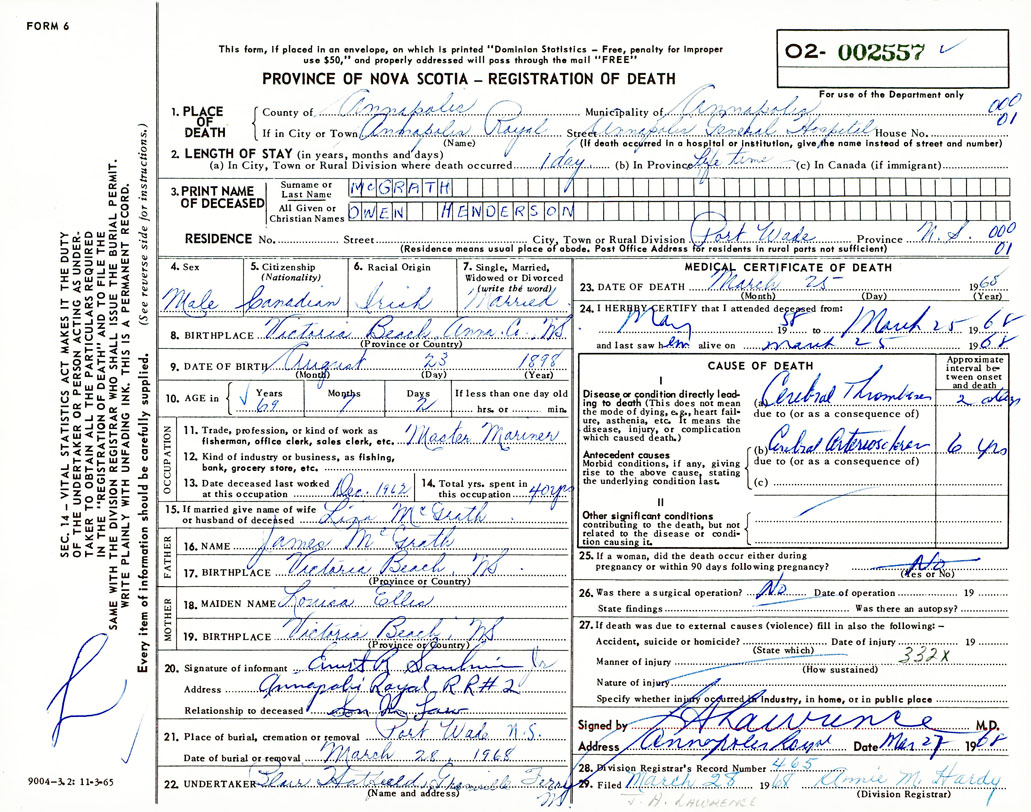 FORM 6
This form, if placed in an envelope, on which is printed "Dominion Statistics – Free, penalty for improper
use $50," and properly addressed will pass through the mail "FREE"
PROVINCE OF NOVA SCOTIA – REGISTRATION OF DEATH
O2- 002557
For use of the Department only
1. PLACE OF DEATH
County of Annapolis Municipality of Annapolis 000
If in City or Town Annapolis Royal Street Annapolis General Hospital House No. 01
(Name) (If death occurred in a hospital or institution, give the name instead of street and number)
2. LENGTH OF STAY (in years, months and days)
(a) In City, Town or Rural Division where death occurred 1 day (b) In Province Life time (c) In Canada (if immigrant)
3. PRINT NAME OF DECEASED
Surname or Last Name McGRATH
All Given or Christian Names OWEN HENDERSON
RESIDENCE No. Street City, Town or Rural Division Port Wade Province N.S. 000
(Residence means usual place of abode. Post Office Address for residents in rural parts not sufficient) 01
4. Sex Male
5. Citizenship (Nationality) Canadian
6. Racial Origin Irish
7. Single, Married, Widowed or Divorced (write the word) Married
8. BIRTHPLACE Victoria Beach, Anna. Co. NS
(Province or Country)
9. DATE OF BIRTH August 23 1898
(Month) (Day) (Year)
10. AGE in Years 69 Months 7 Days 2 If less than one day old hrs. or min.
OCCUPATION
11. Trade, profession, or kind of work as fisherman, office clerk, sales clerk, etc. Master Mariner
12. Kind of industry or business, as fishing, bank, grocery store, etc.
13. Date deceased last worked at this occupation Dec. 1962
14. Total yrs. spent in this occupation 40 yrs
15. If married give name of wife or husband of deceased Lina McGrath
FATHER
16. NAME James McGrath
17. BIRTHPLACE Victoria Beach, NS.
(Province or Country)
MOTHER
18. MAIDEN NAME Louisa Ellis
19. BIRTHPLACE Victoria Beach, NS
(Province or Country)
20. Signature of informant Ernest R Jr
Address Annapolis Royal RR# 2
Relationship to deceased Son In Law
21. Place of burial, cremation or removal Port Wade N.S.
Date of burial or removal March 28, 1968
22. UNDERTAKER Granville Ferry NS
(Name and address)
MEDICAL CERTIFICATE OF DEATH
23. DATE OF DEATH March 25 1968
(Month) (Day) (Year)
24. I HEREBY CERTIFY that I attended deceased from:
May 1958 to March 25 1968
and last saw him alive on March 25 1968
CAUSE OF DEATH
Approximate interval between onset and death
I
Disease or condition directly leading to death (This does not mean the mode of dying, e.g., heart failure, asthenia, etc. It means the disease, injury, or complication which caused death.)
(a) Cerebral Thrombosis 2 days
due to (or as a consequence of)
Antecedent causes
Morbid conditions, if any, giving rise to the above cause, stating the underlying condition last.
(b) Cerebral Arterioscleros 6 yrs
due to (or as a consequence of)
(c)
II
Other significant conditions contributing to the death, but not related to the disease or condition causing it.
25. If a woman, did the death occur either during pregnancy or within 90 days following pregnancy? No
(Yes or No)
26. Was there a surgical operation? No Date of operation 19
State findings Was there an autopsy?
27. If death was due to external causes (violence) fill in also the following: –
Accident, suicide or homicide? Date of injury 19
(State which) 332X
Manner of injury
(How sustained)
Nature of injury
Specify whether injury occurred in industry, in home, or in public place
Signed by Lawrence M.D.
Address Annapolis Royal Date Mar 27 1968
28. Division Registrar's Record Number 465
29. Filed March 28 1968 Annie M. Hardy
(Division Registrar)
J. A. LAWRENCE
SEC. 14 – VITAL STATISTICS ACT MAKES IT THE DUTY
OF THE UNDERTAKER OR PERSON ACTING AS UNDER-
TAKER TO OBTAIN ALL THE PARTICULARS REQUIRED
IN THE "REGISTRATION OF DEATH" AND TO FILE THE
SAME WITH THE DIVISION REGISTRAR WHO SHALL ISSUE THE BURIAL PERMIT.
WRITE PLAINLY WITH UNFADING INK. THIS IS A PERMANENT RECORD.
Every item of information should be carefully supplied. (See reverse side for instructions.)
9004-3.2: 11-3-65